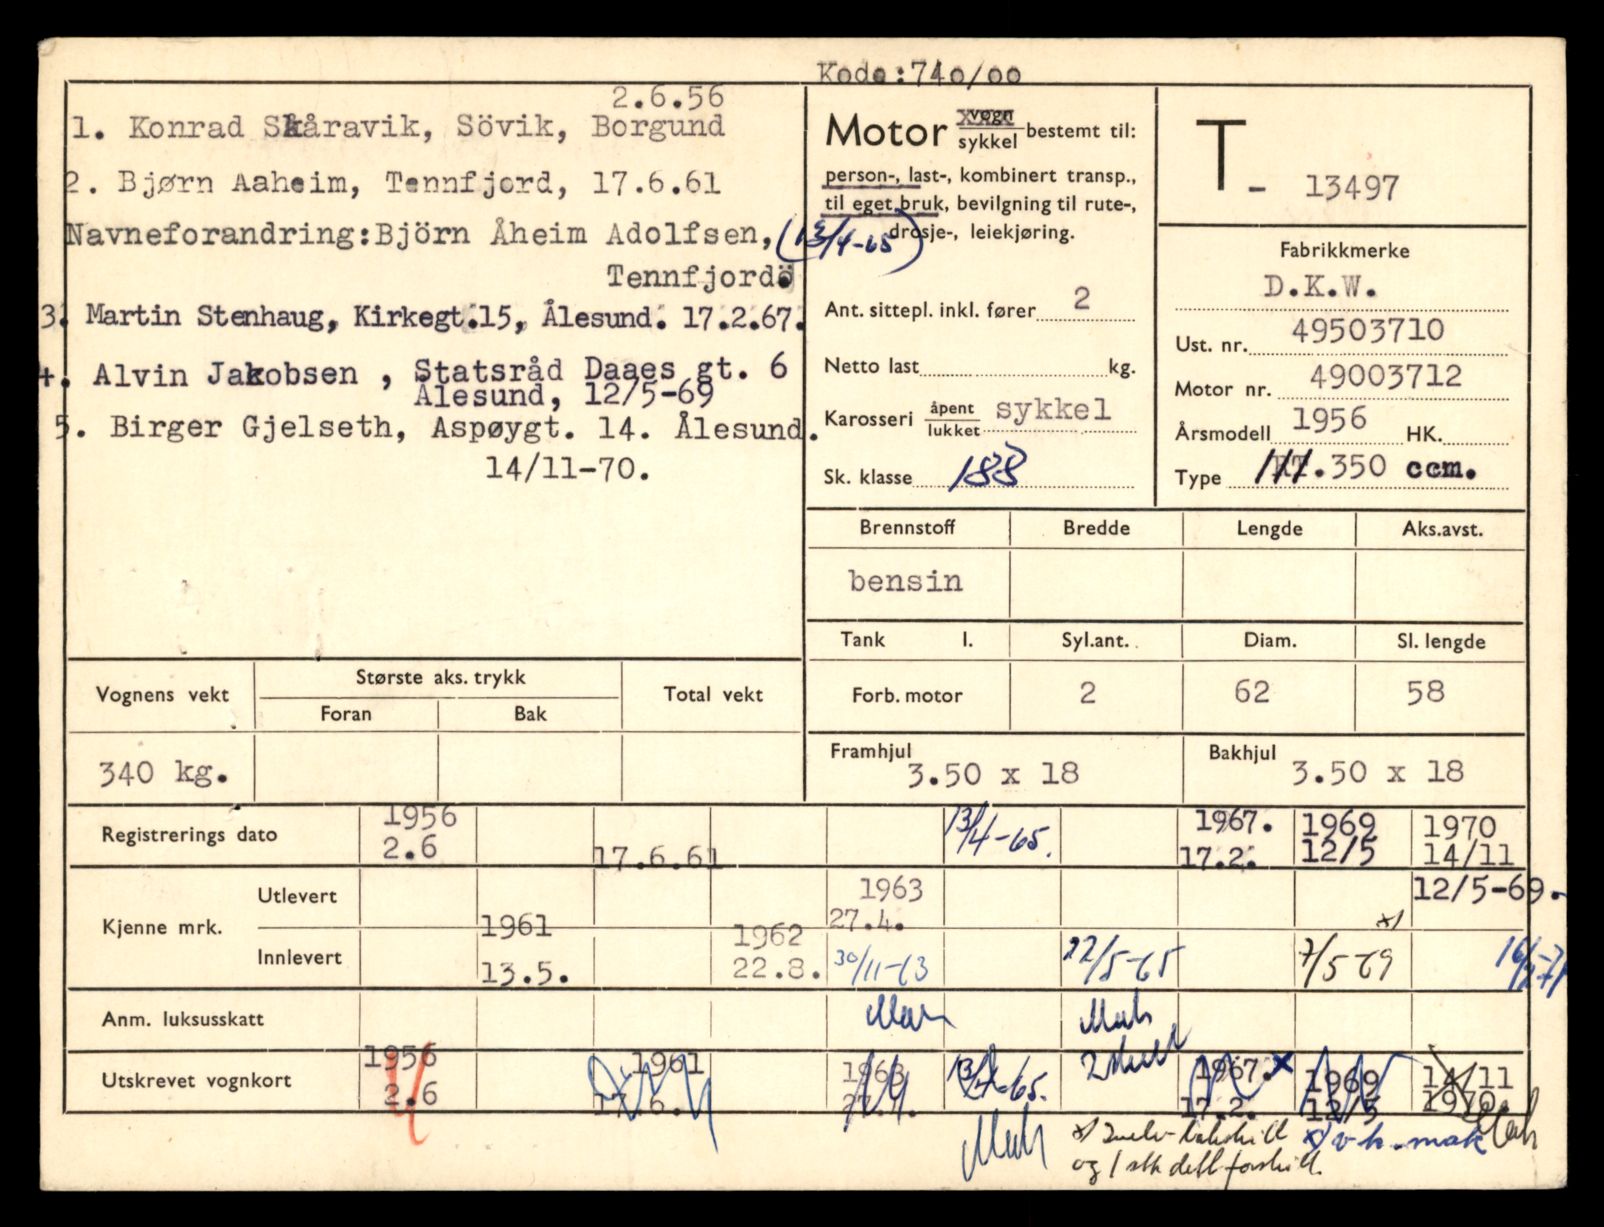 Kode:740/00
2.6.56
1. Konrad Skåravik, Sövik, Borgund
2. Bjørn Aaheim, Tennfjord, 17.6.61
Navneforandring:Björn Åheim Adolfsen, (13/4-65)
Tennfjord.
3. Martin Stenhaug, Kirkegt.15, Ålesund. 17.2.67.
4. Alvin Jakobsen , Statsråd Daaes gt. 6
Ålesund, 12/5-69
5. Birger Gjelseth, Aspøygt. 14. Ålesund.
14/11-70.
Motor vogn sykkel bestemt til:
person-, last-, kombinert transp.,
til eget bruk, bevilgning til rute-,
drosje-, leiekjøring.
Ant. sittepl. inkl. fører 2
Netto last kg.
Karosseri åpent lukket sykkel
Sk. klasse 188
T- 13497
Fabrikkmerke
D.K.W.
Ust. nr. 49503710
Motor nr. 49003712
Årsmodell 1956 HK.
Type .350 ccm.
Brennstoff Bredde Lengde Aks.avst.
bensin
Tank l. Syl.ant. Diam. Sl. lengde
Forb. motor 2 62 58
Framhjul 3.50 x 18 Bakhjul 3.50 x 18
Vognens vekt Største aks. trykk Total vekt
Foran Bak
340 kg.
Registrerings dato 1956 2.6 17.6.61 13/4-65. 1967. 17.2. 1969 12/5 1970 14/11
Kjenne mrk.
Utlevert 1961 1963 27.4. x) 12/5-69.
Innlevert 13.5. 1962 22.8. 30/11-63 22/5-65 7/5 69
Anm. luksusskatt
Utskrevet vognkort 1956 2.6 1961 17.6. 1963 27.4. 13/4-65. 1967. x 17.2. 1969 12/5 14/11 1970.
x)
og 1 stk